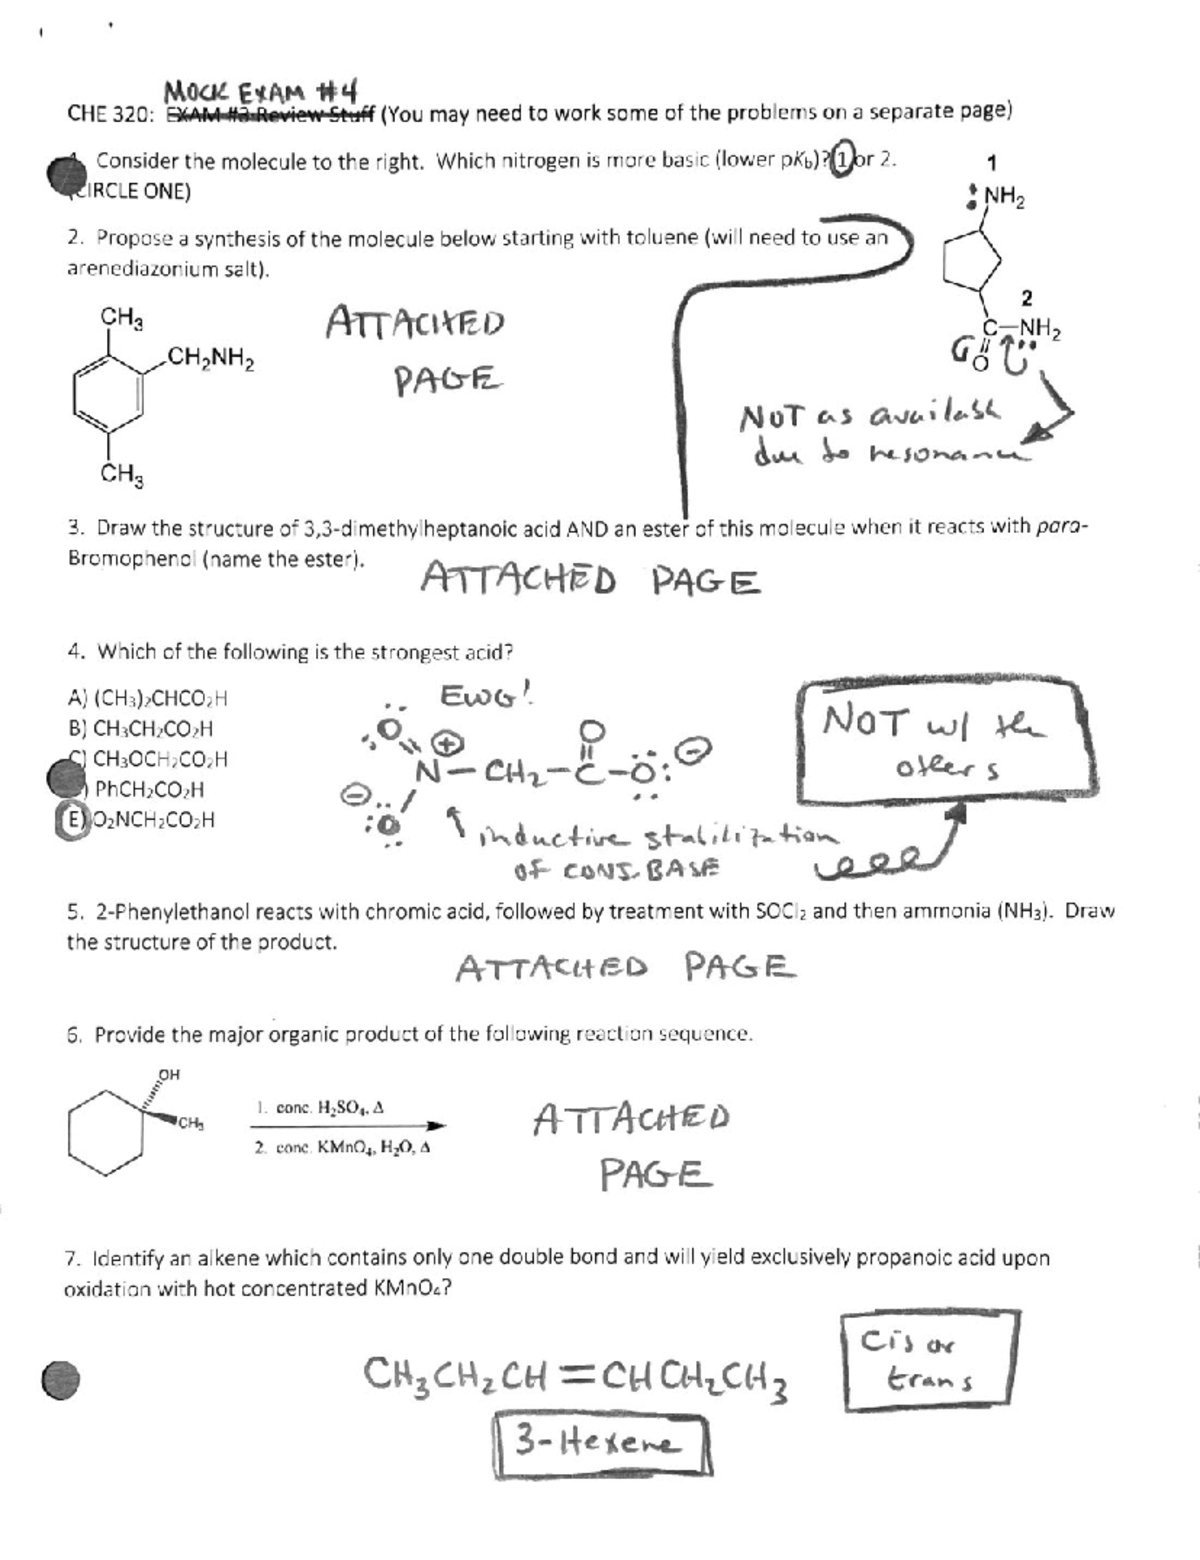 MOCK EXAM #4
CHE 320: EXAM #3 Review Stuff (You may need to work some of the problems on a separate page)
Consider the molecule to the right. Which nitrogen is more basic (lower pKb)? 1 or 2.
(CIRCLE ONE)
1
:NH2
2. Propose a synthesis of the molecule below starting with toluene (will need to use an
arenediazonium salt).
2
C—NH2
O
CH3
CH2NH2
CH3
ATTACHED
PAGE
NOT as available
due to resonance
3. Draw the structure of 3,3-dimethylheptanoic acid AND an ester of this molecule when it reacts with para-
Bromophenol (name the ester).
ATTACHED PAGE
4. Which of the following is the strongest acid?
A) (CH3)2CHCO2H
B) CH3CH2CO2H
C) CH3OCH2CO2H
) PhCH2CO2H
E) O2NCH2CO2H
EWG!
O
N—CH2—C—O:
O
:O
inductive stabilization
OF CONJ. BASE
NOT w/ the
others
5. 2-Phenylethanol reacts with chromic acid, followed by treatment with SOCl2 and then ammonia (NH3). Draw
the structure of the product.
ATTACHED PAGE
6. Provide the major organic product of the following reaction sequence.
OH
CH3
1. conc. H2SO4, Δ
2. conc. KMnO4, H2O, Δ
ATTACHED
PAGE
7. Identify an alkene which contains only one double bond and will yield exclusively propanoic acid upon
oxidation with hot concentrated KMnO4?
CH3CH2CH=CHCH2CH3
3-Hexene
Cis or
trans